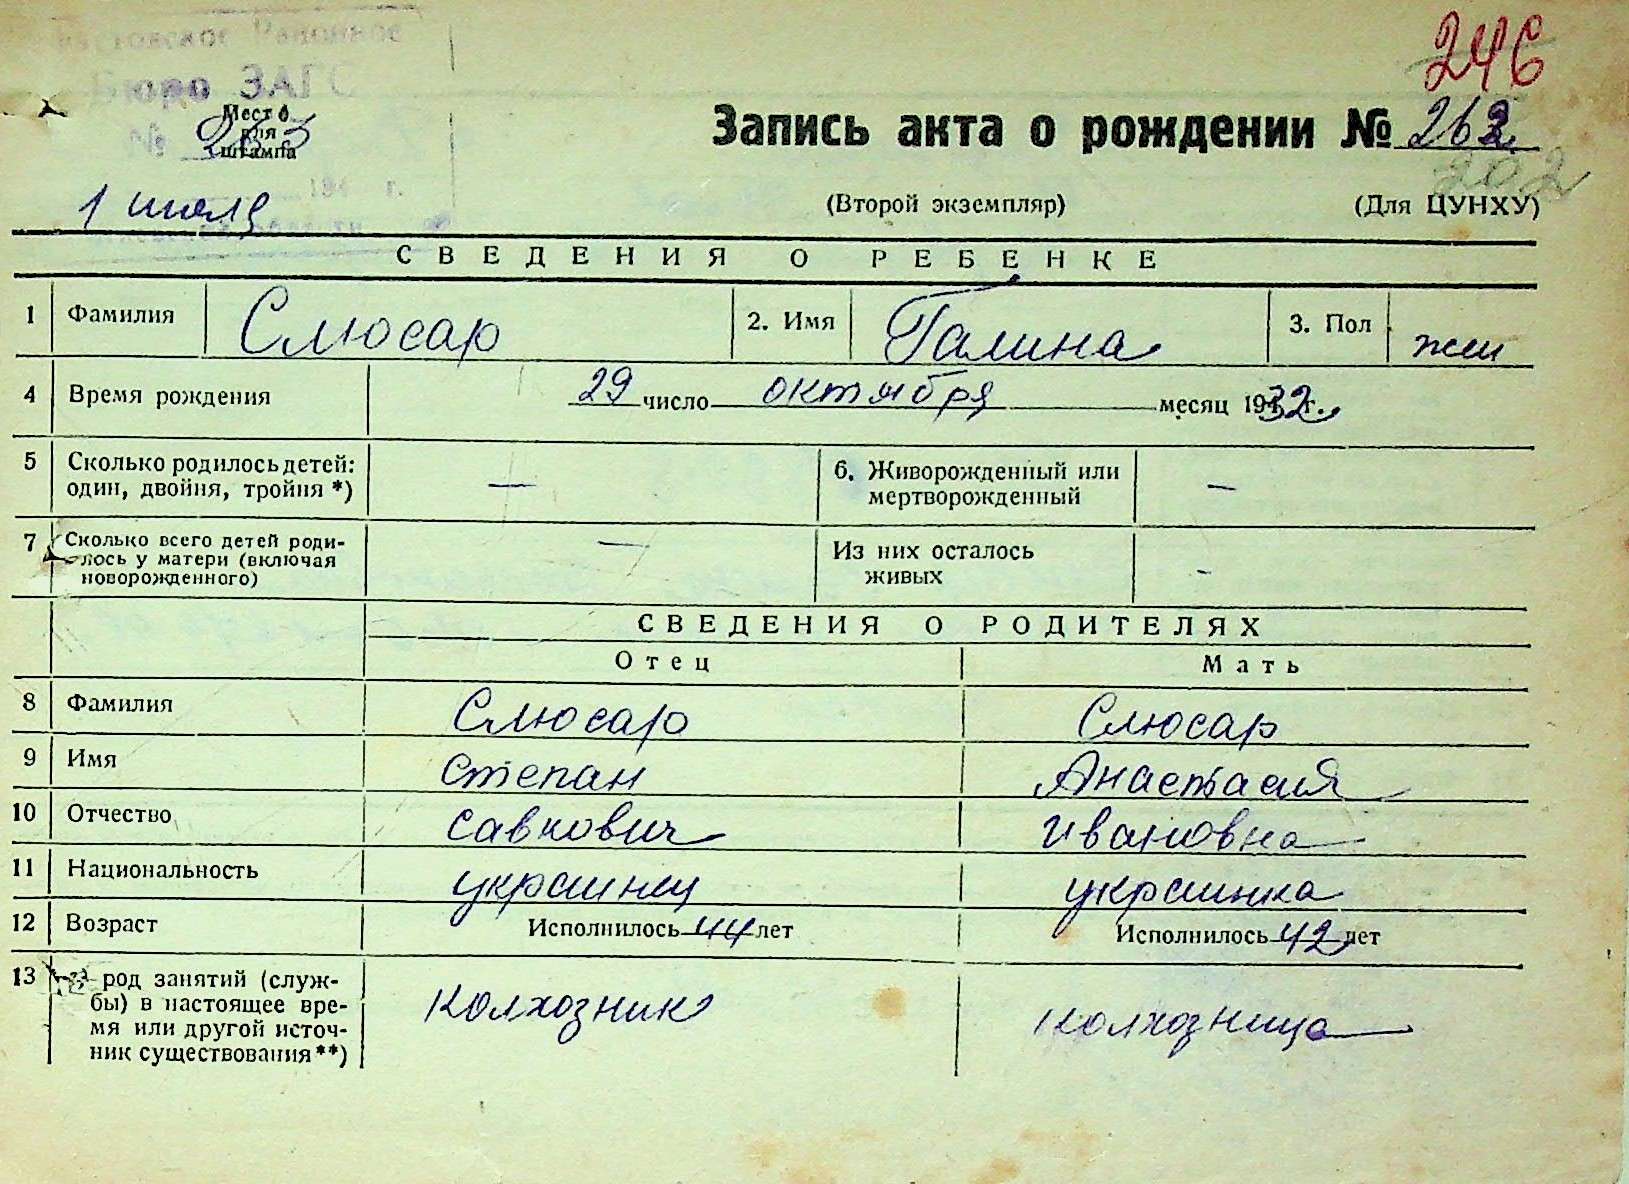 246
Районное
Бюро ЗАГС
Место
для
штампа
№ 263
194 г.
1 июля
области
Запись акта о рождении № 263
202
(Второй экземпляр)
(Для ЦУНХУ)
СВЕДЕНИЯ О РЕБЕНКЕ
1 Фамилия Слюсар 2. Имя Галина 3. Пол жен
4 Время рождения 29 число октября месяц 1932 г.
5 Сколько родилось детей: один, двойня, тройня *) — 6. Живорожденный или мертворожденный —
7 Сколько всего детей роди-
лось у матери (включая
новорожденного) — Из них осталось живых -
СВЕДЕНИЯ О РОДИТЕЛЯХ
Отец Мать
8 Фамилия Слюсар Слюсар
9 Имя Степан Анастасия
10 Отчество Савкович Ивановна
11 Национальность украинец украинка
12 Возраст Исполнилось 44 лет Исполнилось 42 лет
13 род занятий (служ-
бы) в настоящее вре-
мя или другой источ-
ник существования**) Колхозник колхозница